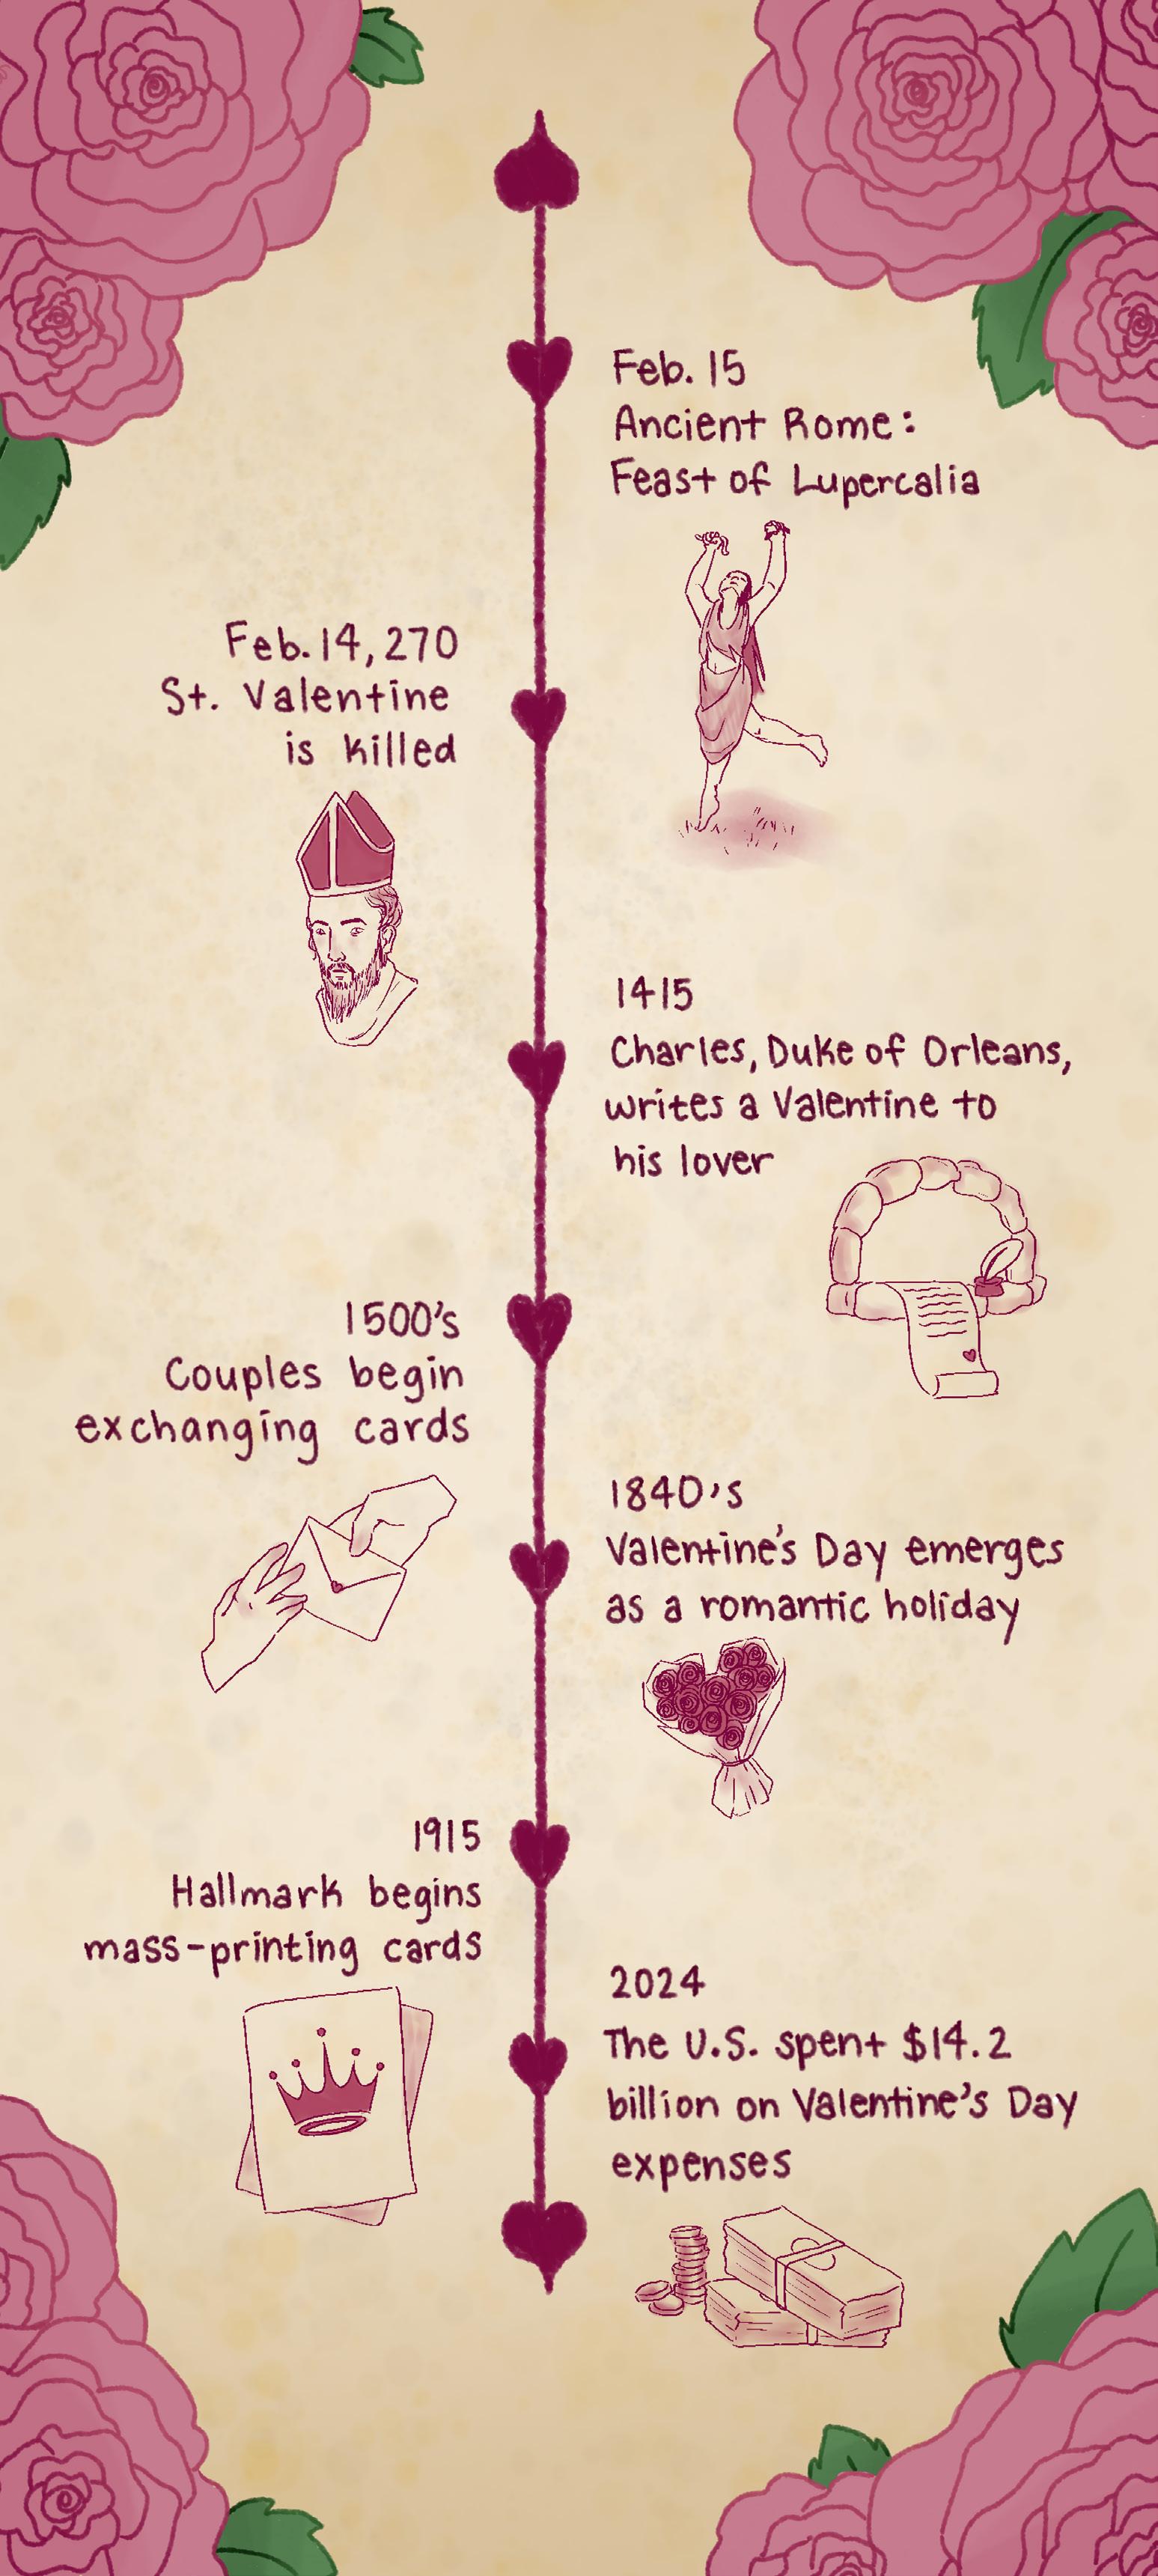 Feb. 15
Ancient Rome:
Feast of Lupercalia
Feb. 14, 270
St. Valentine
is killed
1415
Charles, Duke of Orleans,
writes a Valentine to
his lover
1500's
Couples begin
exchanging cards
1840's
Valentine's Day emerges
as a romantic holiday
1915
Hallmark begins
mass-printing cards
2024
The U.S. spent $14.2
billion on Valentine's Day
expenses